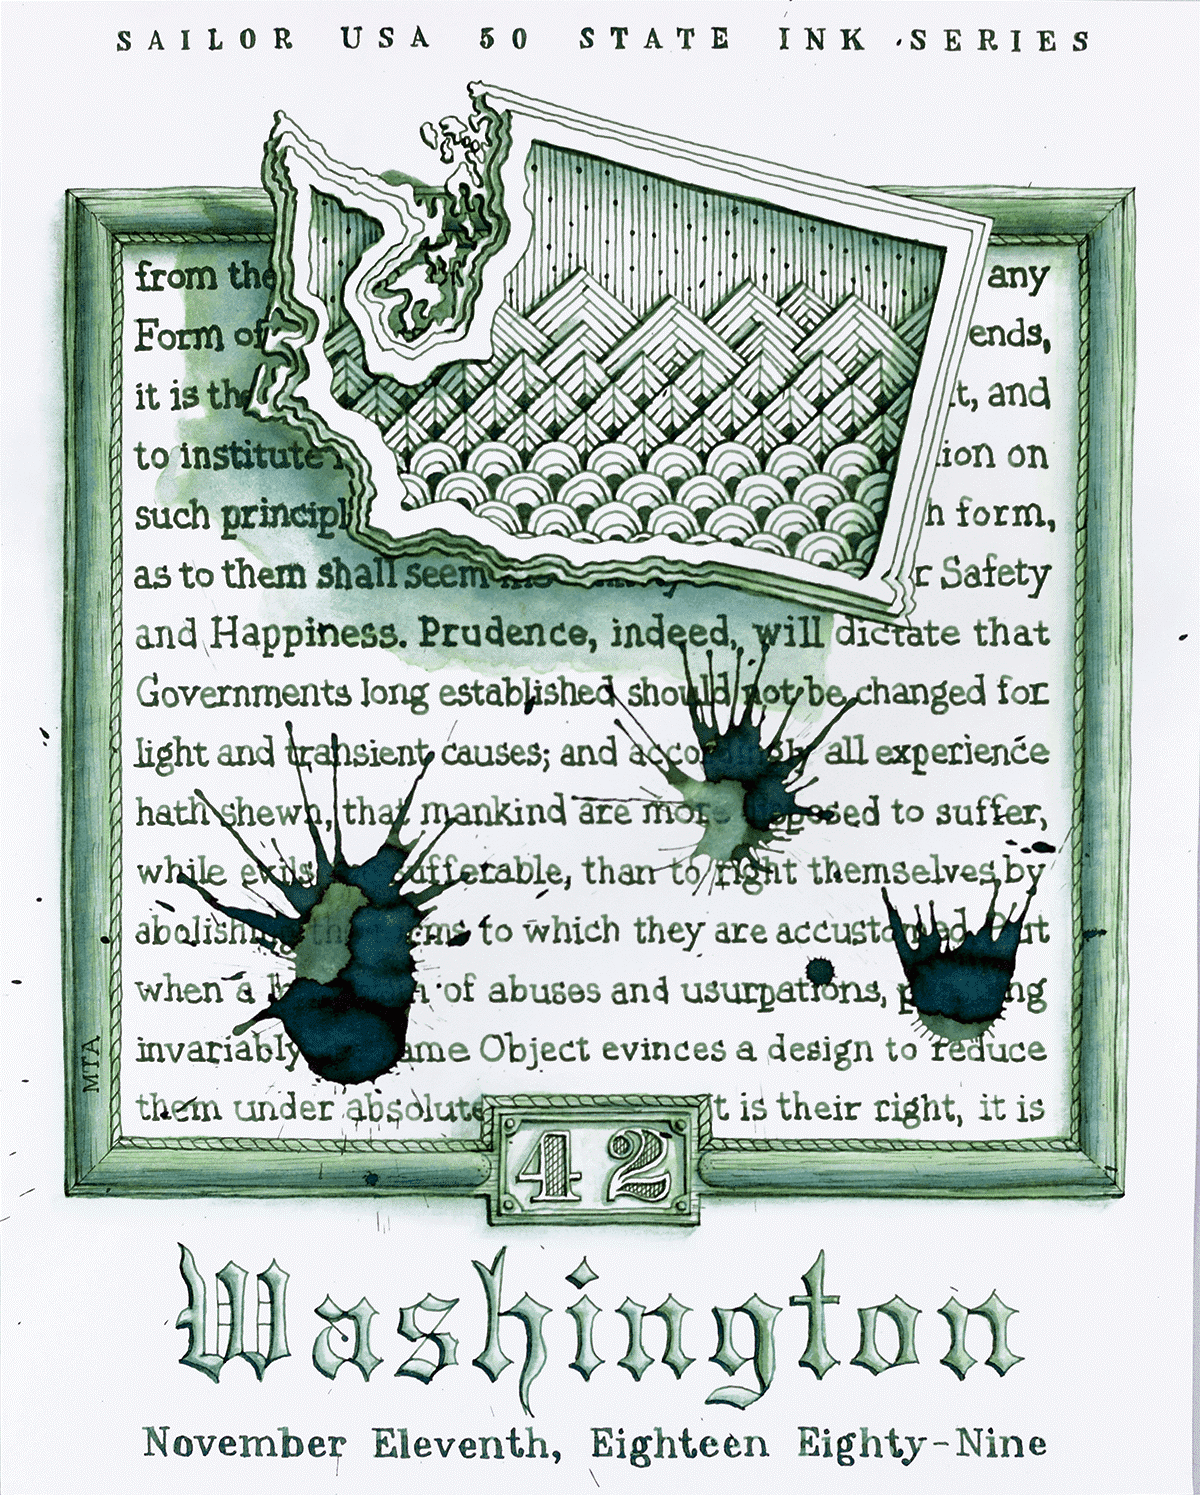 SAILOR USA 50 STATE INK SERIES
from the any
Form of ends,
it is the t, and
to institute ion on
such principl h form,
as to them shall seem r Safety
and Happiness. Prudence, indeed, will dictate that
Governments long established should not be changed for
light and transient causes; and accordingly all experience
hath shewn, that mankind are more disposed to suffer,
while evils sufferable, than to right themselves by
abolishing the forms to which they are accustomed. But
when a of abuses and usurpations, pursuing
invariably ame Object evinces a design to reduce
them under absolute t is their right, it is
MTA
42
Washington
November Eleventh, Eighteen Eighty-Nine